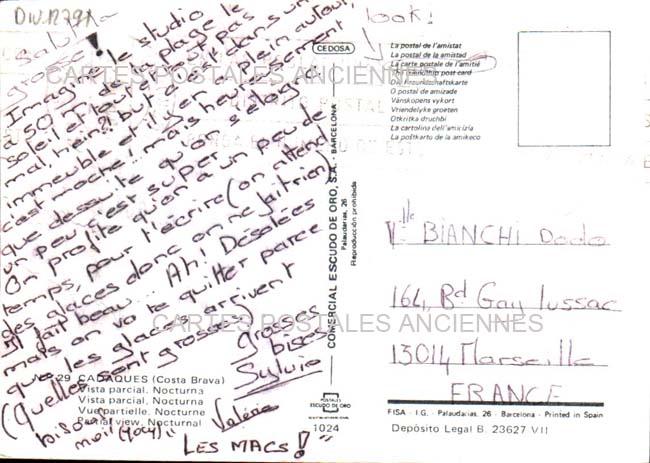 DIV.12791
Salut la
grosse!
Imag le studio
à 50 m de la plage le
soleil et tout dans un
mal, hein?! but a plein autour,
immeuble et l'isement
c'est moche! Mais heureusement
que dessuite qu'on se log
un peu c'est super.
On profite qu'on a un peu de
temps, pour t'écrire (on attend
des glaces donc on ne fait rien)
Il fait beau... Ah! Désolées
mais on va te quitter parce
que les glaces arrivent
(Quelles sont grosses
grosses
bises
Sylvie
bisou
moi (Joey)"
Valérie
LES MACS! "
look!
CEDOSA
La postal de l'amistat
La postal de la amistad
La carte postale de l'amitié
The friendship post card
Die Freundschaftskarte
O postal de amizade
Vänskopens vykort
Vriendelyke groeten
Otkritka druchbi
La cartolina dell'amicizia
La poŝtkarto de la amikeco
COMERCIAL ESCUDO DE ORO, S.A. - BARCELONA
Palaudarias, 26
Reproducción prohibida
Mlle BIANCHI Dodo
164, Bd Gay Lussac
13014 Marseille
FRANCE
Nº 29 CADAQUES (Costa Brava)
Vista parcial. Nocturna
Vista parcial. Nocturna
Vue partielle. Nocturne
Partial view. Nocturnal
POSTALES
ESCUDO DE ORO
1024
FISA - I.G. - Palaudarias, 26 - Barcelona - Printed in Spain
Depósito Legal B. 23627 VII
CARTES POSTALES ANCIENNES
CARTES POSTALES ANCIENNES